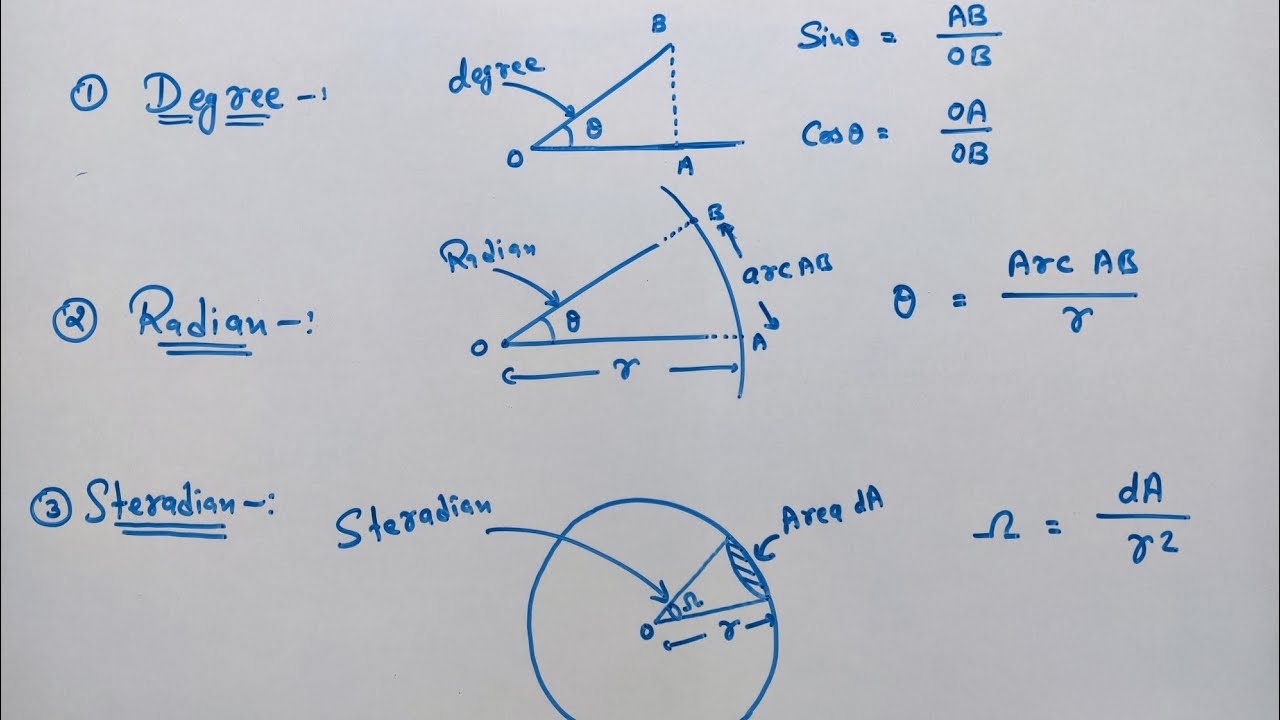 ① Degree -:
degree
B
θ
O
A
Sinθ = AB/OB
Cosθ = OA/OB
② Radian -:
Radian
B
arc AB
θ
O
A
r
θ = Arc AB/r
③ Steradian -:
Steradian
Area dA
Ω
O
r
Ω = dA/r2